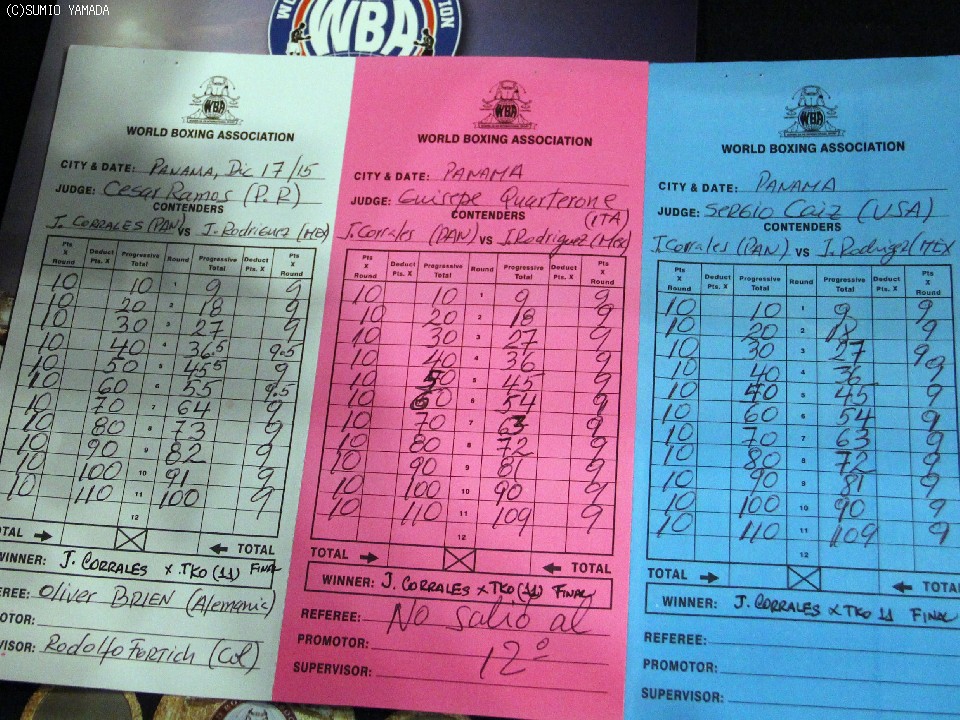 (C)SUMIO YAMADA
WBA
WBA
WORLD BOXING ASSOCIATION
CITY & DATE: PANAMA, Dic 17/15
JUDGE: Cesar Ramos (P.R)
CONTENDERS
J. CORRALES (PAN) VS J. Rodriguez (MEX)
Pts X Round Deduct Pts. X Progressive Total Round Progressive Total Deduct Pts. X Pts X Round
10 10 9 9
10 20 2 18 9
10 30 3 27 9
10 40 4 36.5 9.5
10 50 5 45.5 9
10 60 6 55 9.5
10 70 7 64 9
10 80 8 73 9
10 90 9 82 9
10 100 10 91 9
10 110 11 100 9
12
TOTAL TOTAL
WINNER: J. CORRALES x TKO (11) FINAL
EREE: Oliver BRIEN (Alemania)
OTOR:
VISOR: Rodolfo Fortich (Col)
WBA
WORLD BOXING ASSOCIATION
CITY & DATE: PANAMA
JUDGE: Guisepe Quarterone (ITA)
CONTENDERS
J. Corrales (PAN) VS J. Rodriguez (Mex)
Pts X Round Deduct Pts. X Progressive Total Round Progressive Total Deduct Pts. X Pts X Round
10 10 1 9 9
10 20 2 18 9
10 30 3 27 9
10 40 4 36 9
10 50 5 45 9
10 60 6 54 9
10 70 7 63 9
10 80 8 72 9
10 90 9 81 9
10 100 10 90 9
10 110 11 109 9
12
TOTAL TOTAL
WINNER: J. CORRALES x TKO (11) FINAL
REFEREE: No salio al
PROMOTOR: 12º
SUPERVISOR:
WBA
WORLD BOXING ASSOCIATION
CITY & DATE: PANAMA
JUDGE: SERGIO Caiz (USA)
CONTENDERS
J. Corrales (PAN) VS J. Rodriguez (MEX
Pts X Round Deduct Pts. X Progressive Total Round Progressive Total Deduct Pts. X Pts X Round
10 10 1 9 9
10 20 2 18 9
10 30 3 27 9
10 40 4 36 9
10 5 45 9
10 60 6 54 9
10 70 7 63 9
10 80 8 72 9
10 90 9 81 9
10 100 10 90 9
10 110 11 109 9
12
TOTAL TOTAL
WINNER: J. CORRALES x TKO 11 FINAL
REFEREE:
PROMOTOR:
SUPERVISOR: